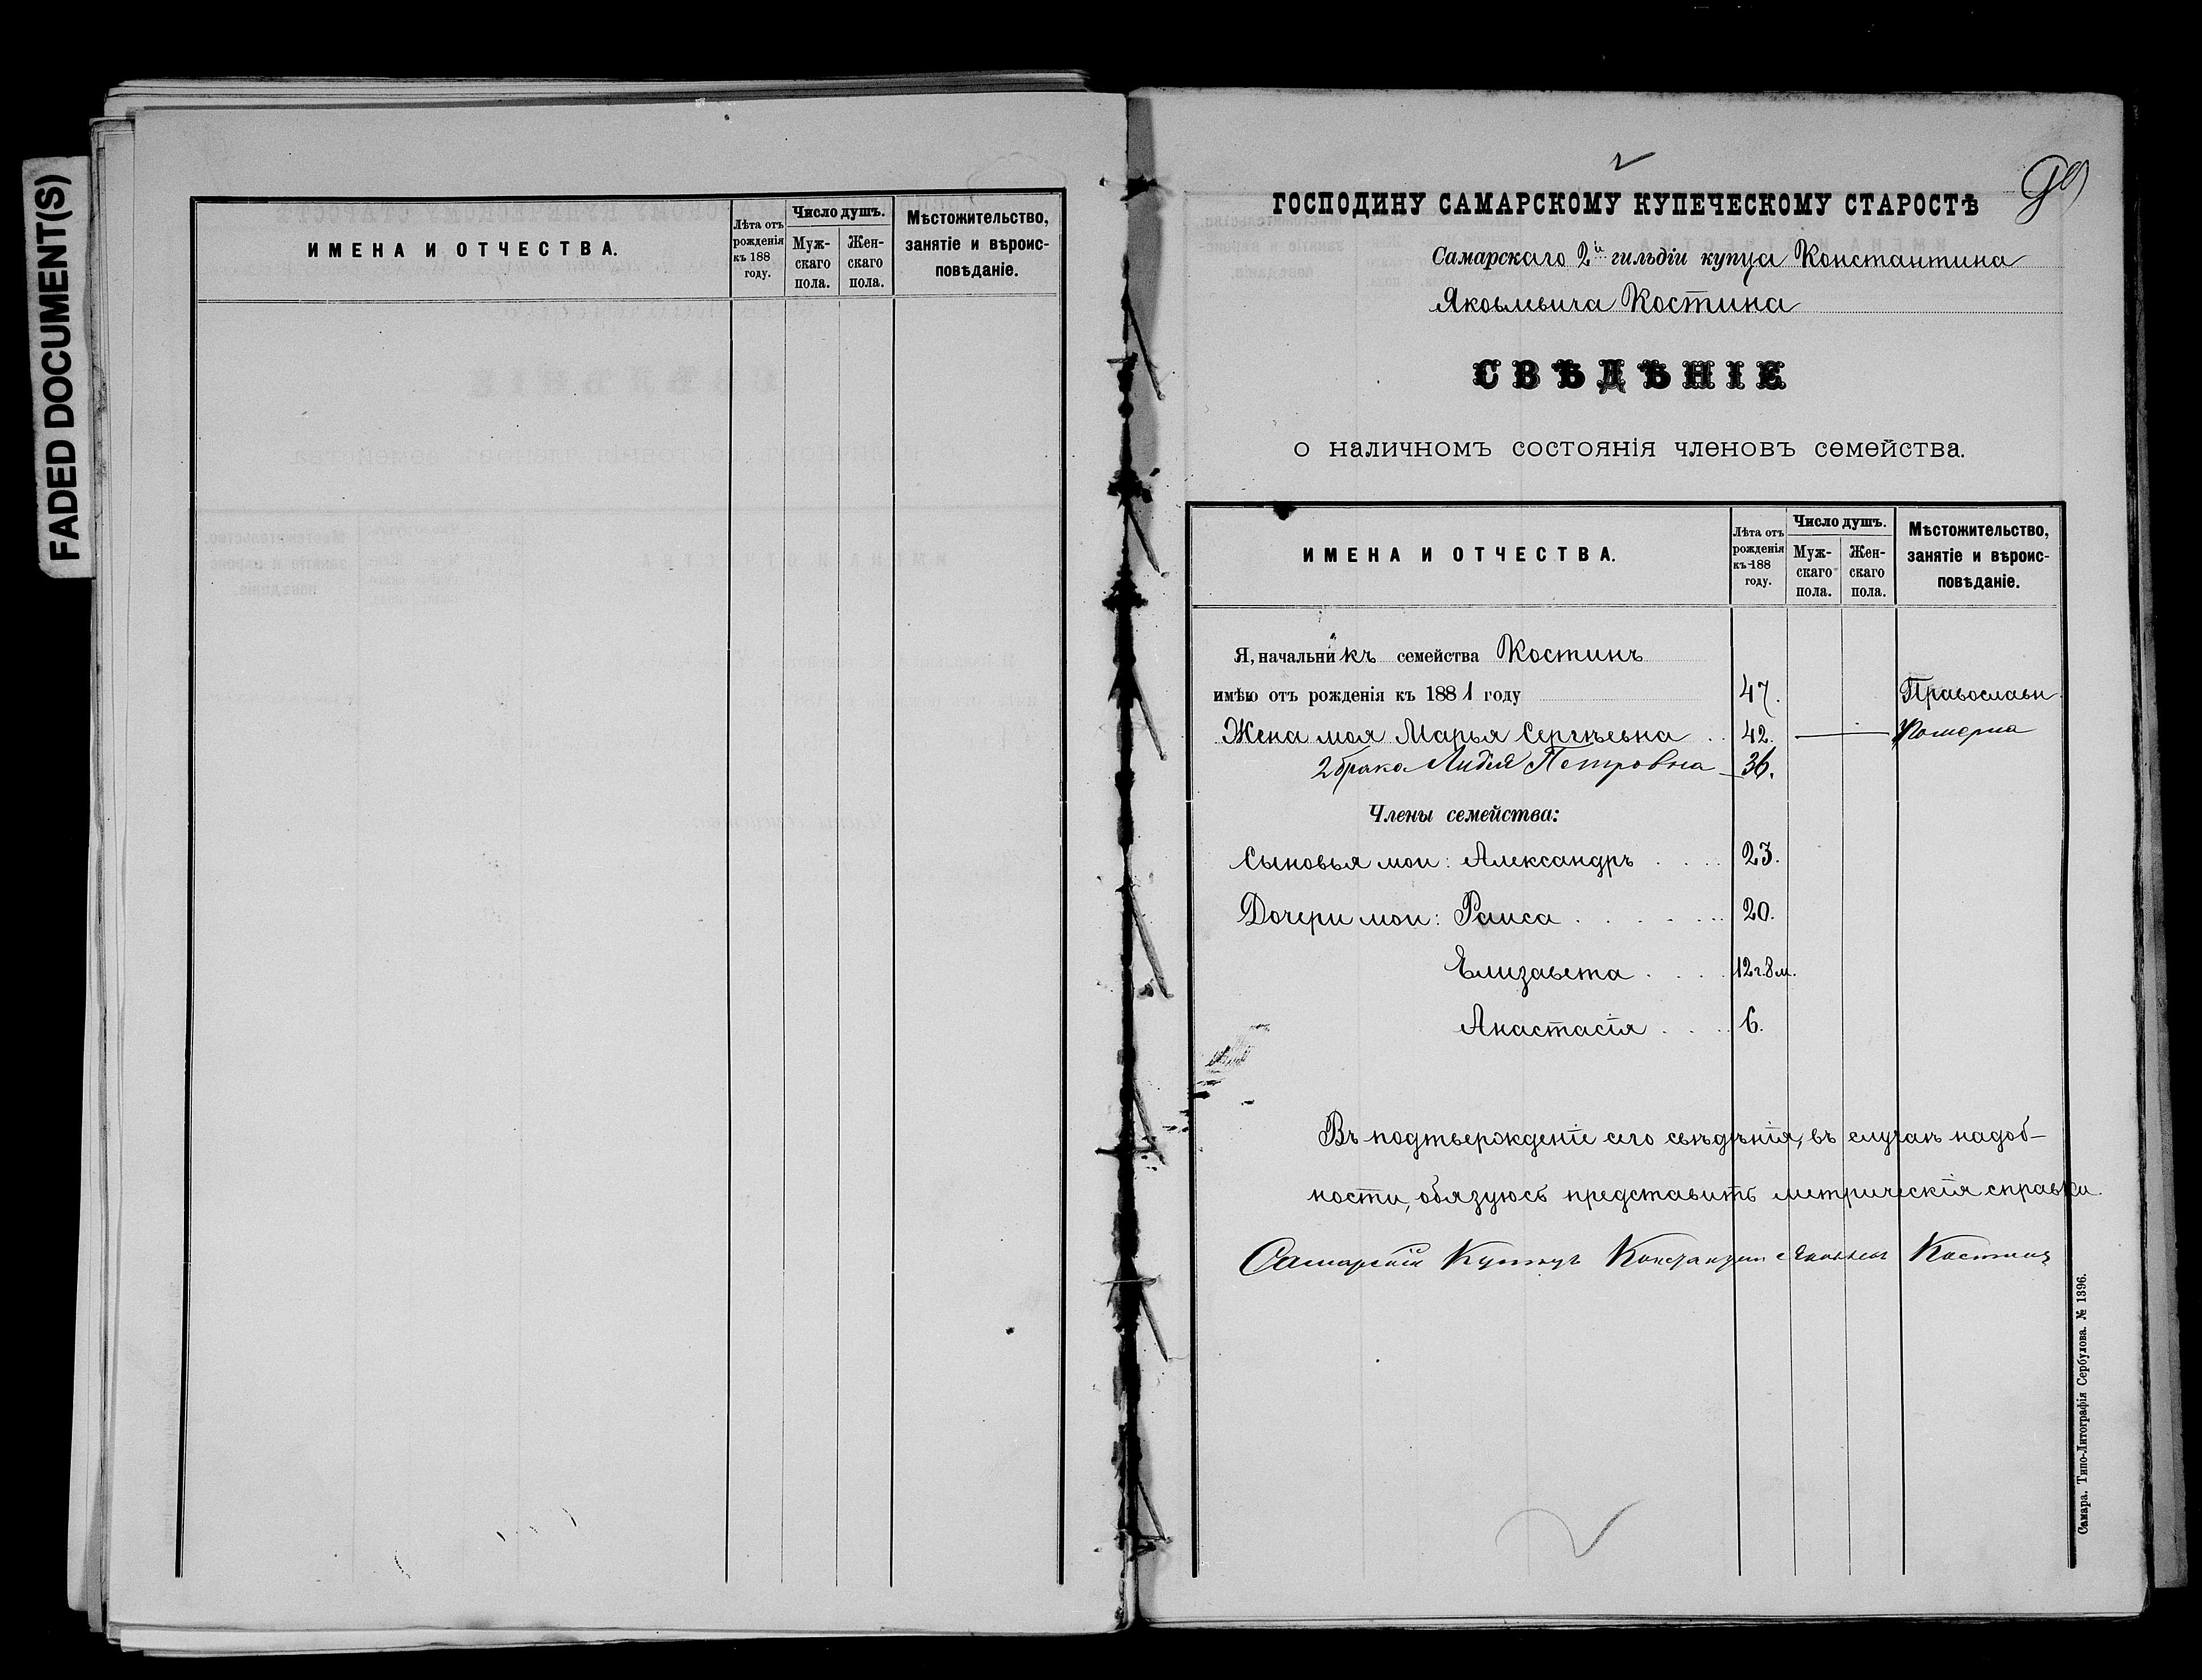 FADED DOCUMENT(S)
ИМЕНА И ОТЧЕСТВА.
Лѣта отъ рожденія къ 188 году.
Число душъ.
Мужскаго пола.
Женскаго пола.
Мѣстожительство, занятіе и вѣроисповѣданіе.
ГОСПОДИНУ САМАРСКОМУ КУПЕЧЕСКОМУ СТАРОСТѢ
Самарскаго 2й гильдіи купца Константина
Яковлевича Костина
СВѢДѢНІЕ
о наличномъ состоянія членовъ семейства.
ИМЕНА И ОТЧЕСТВА.
Лѣта отъ рожденія къ 188 году.
Число душъ.
Мужскаго пола.
Женскаго пола.
Мѣстожительство, занятіе и вѣроисповѣданіе.
Я, начальникъ семейства Костинъ
имѣю отъ рожденія къ 1881 году 47. Православн.
Жена моя Марья Сергѣевна 42. — Померла
2 брака Лидія Петровна 36.
Члены семейства:
Сыновья мои: Александръ 23.
Дочери мои: Раиса 20.
Елизавета 12 г. 8 м.
Анастасія 6.
Въ подтвержденіе сего свѣдѣнія, въ случаѣ надоб-
ности, обязуюсь представить метрическія справки.
Самарскій Купецъ Константин Яковлев Костинъ
Самара. Типо-Литографія Сербулова. № 1396.